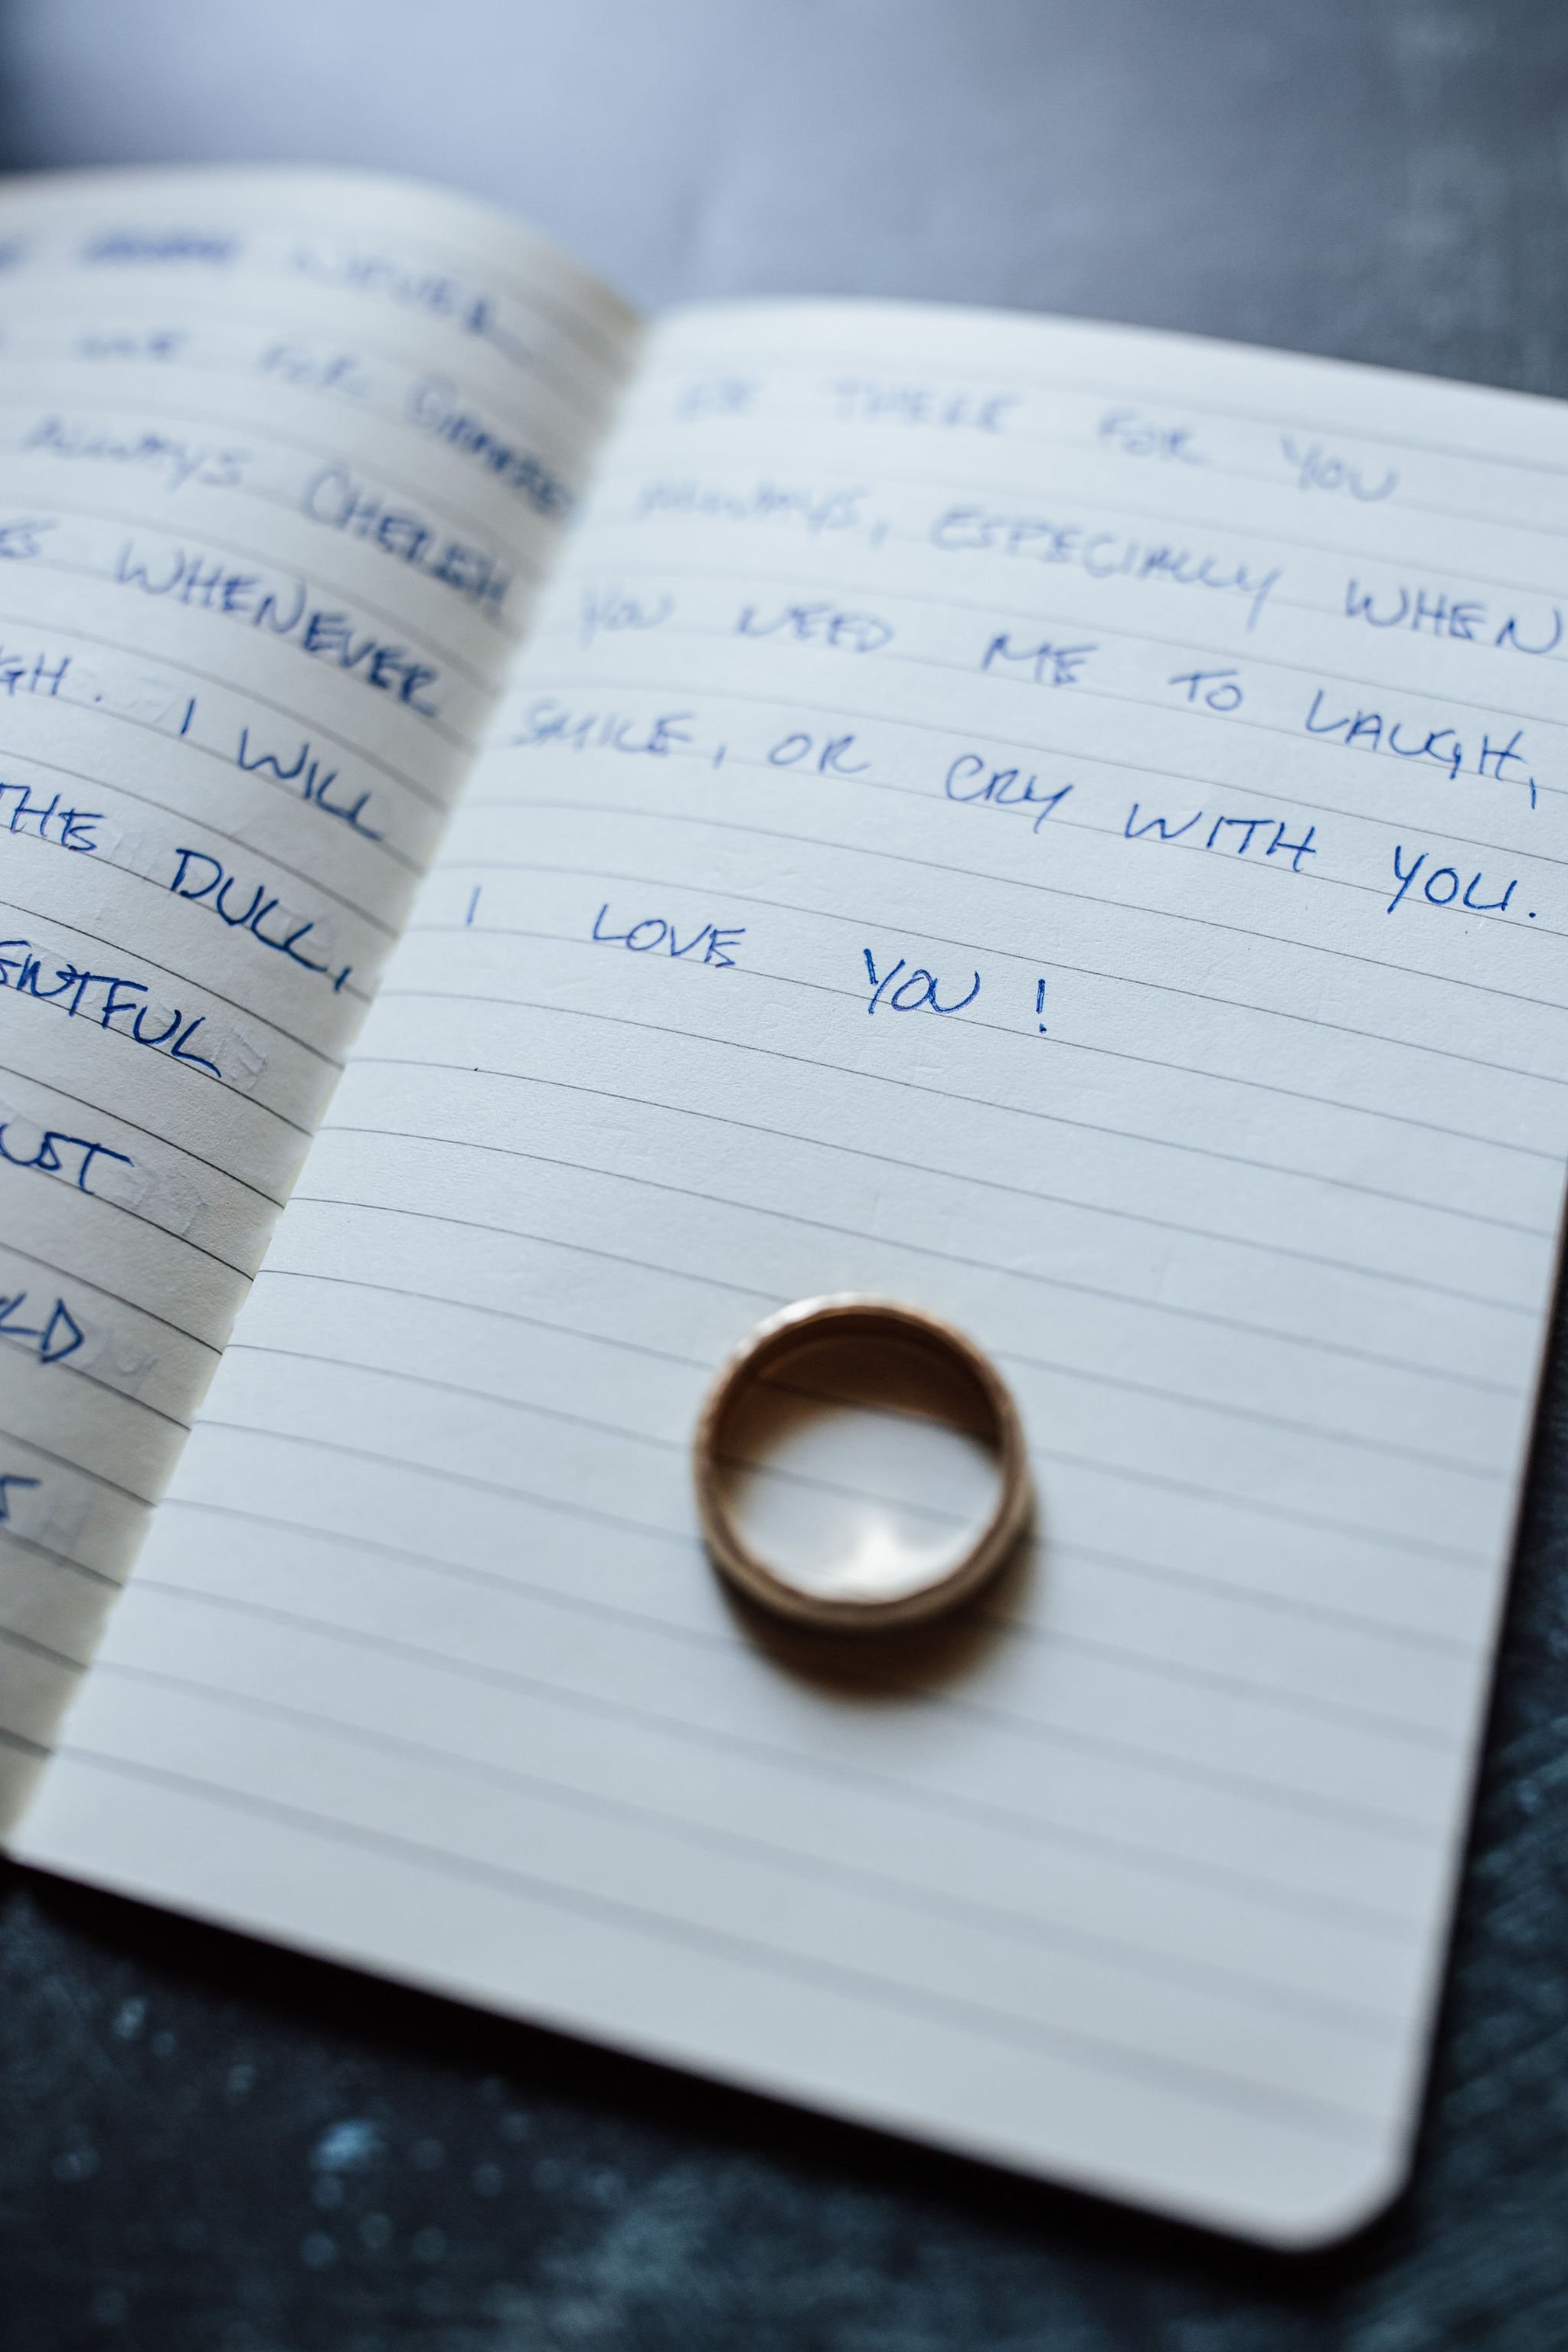 NEVER
ME FOR GRANTED
ALWAYS CHERISH
WHENEVER
I WILL
THE DULL,
BE THERE FOR YOU
ALWAYS, ESPECIALLY WHEN
YOU NEED ME TO LAUGH,
SMILE, OR CRY WITH YOU.
I LOVE YOU!